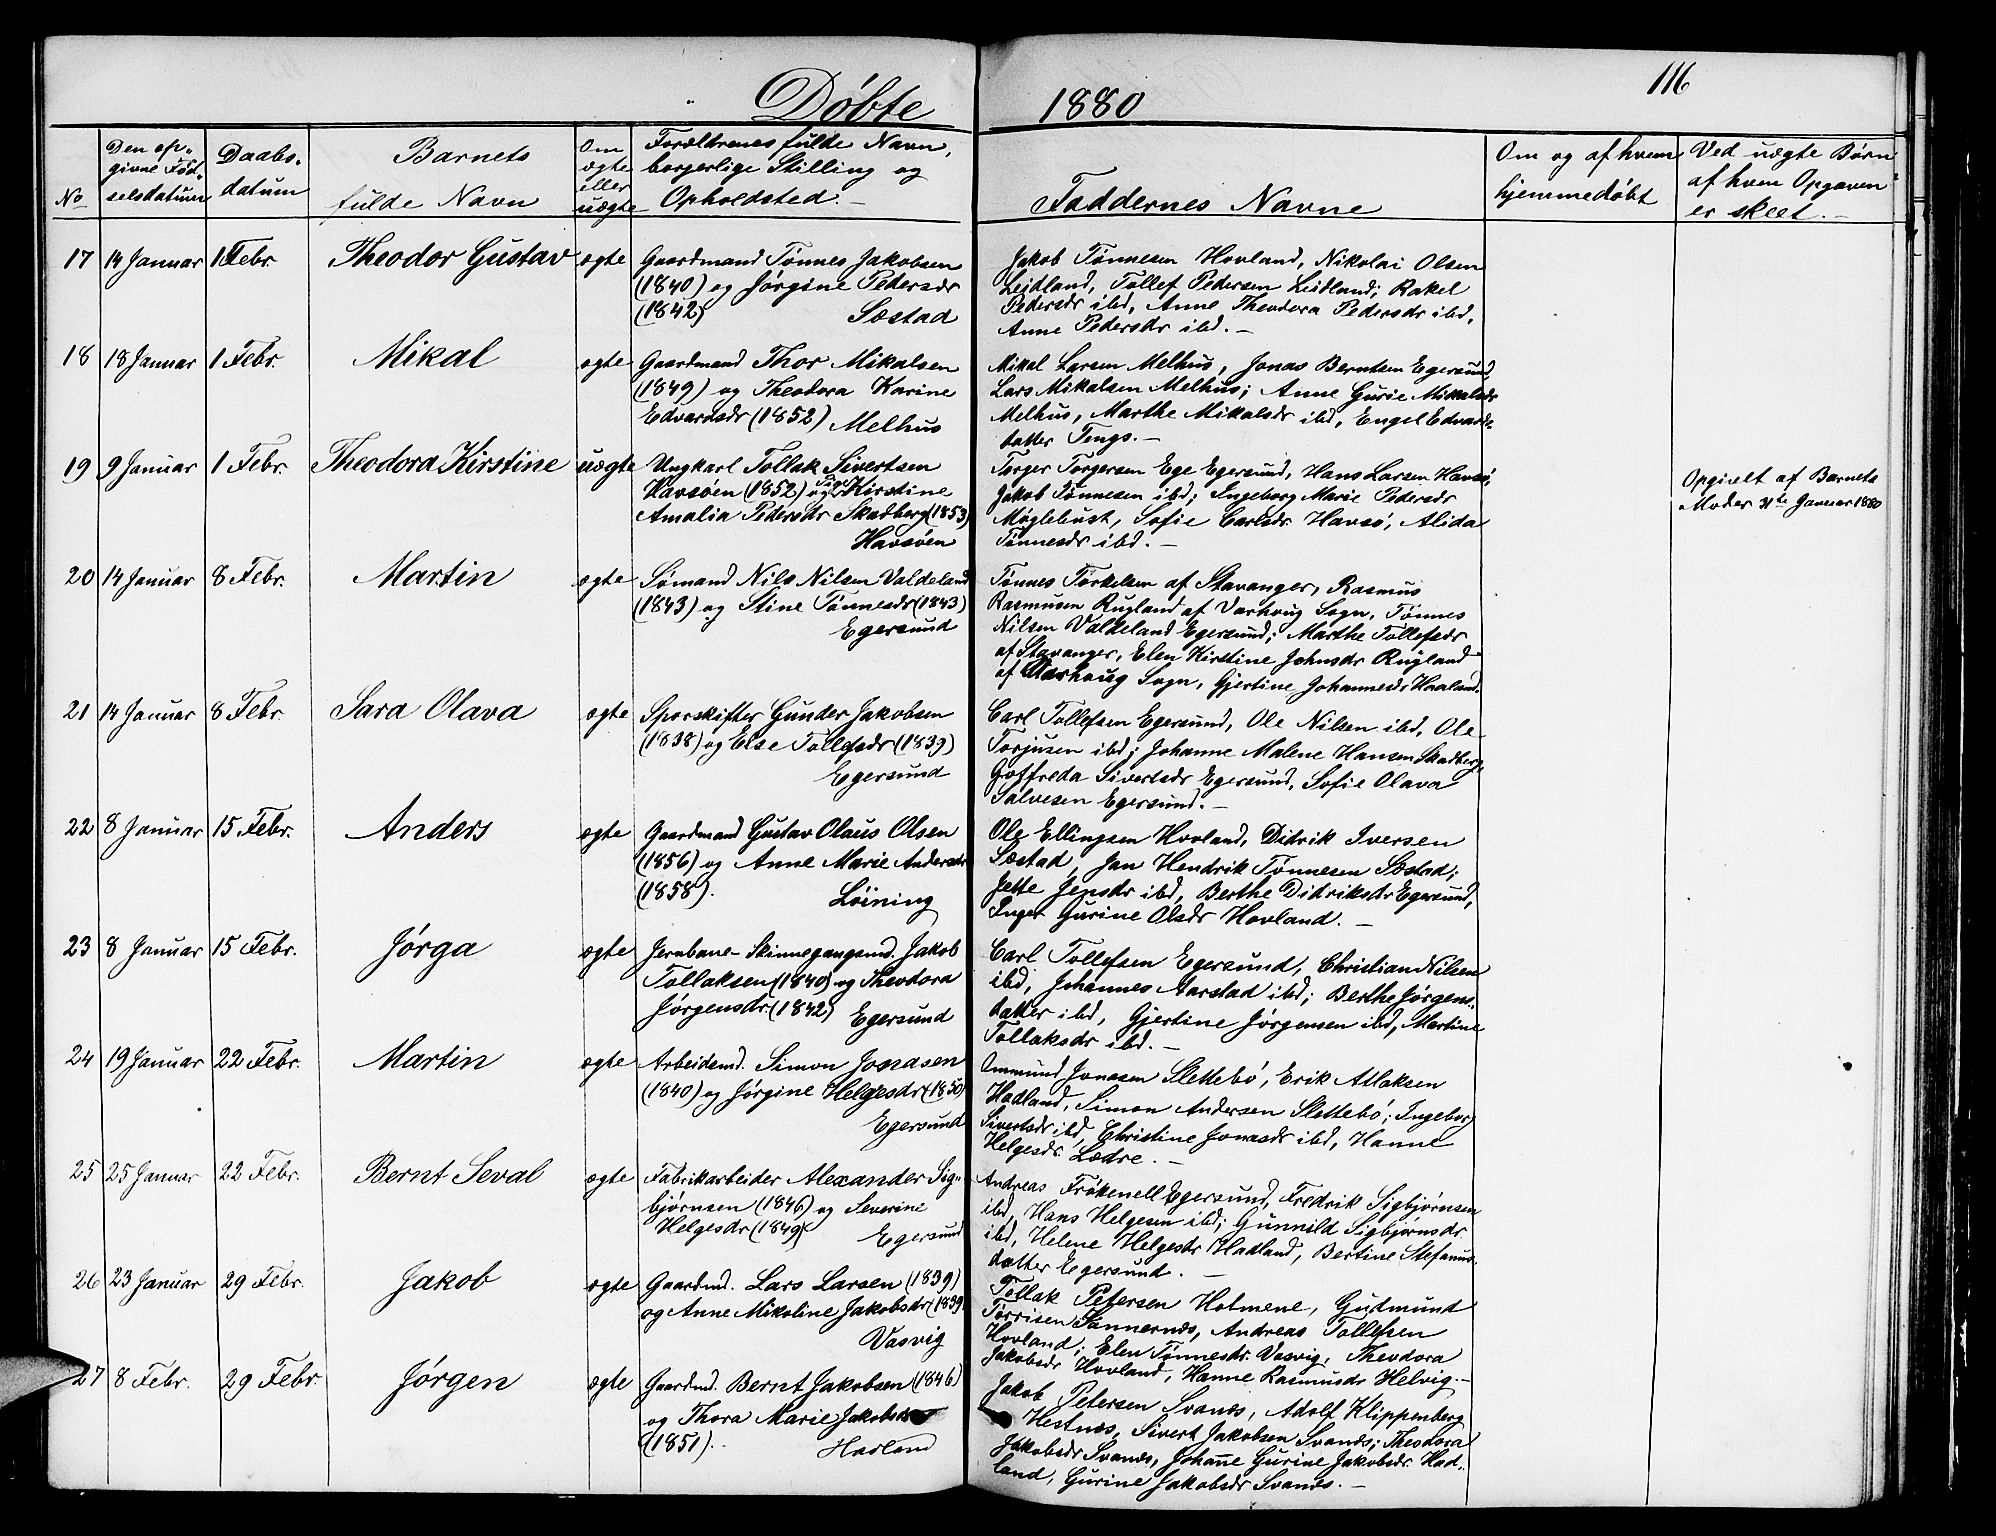 116
Døbte 1880
No
Den op-
givne Fød-
selsdatum
Daabs-
datum
Barnets
fulde Navn
Om
ægte
eller
uægte
Forældrenes fulde Navn,
borgerlige Stilling og
Opholdsted.-
Faddernes Navne
Om og af hvem
hjemmedøbt
Ved uægte Børn
af hvem Opgaven
er skeet.-
17 14 Januar 1 Febr. Theodor Gustav ægte
Gaardmand Tønnes Jakobsen
(1840) og Jørgine Pedersdr
(1842) Sæstad
Jakob Tønnesen Hovland, Nikolai Olsen
Leidland, Tollef Pedersen Leidland; Rakel
Pedersdr ibd, Anne Theodora Pedersdr ibd,
Anne Pedersdr ibd.-
18 18 Januar 1 Febr. Mikal ægte
Gaardmand Thor Mikalsen
(1849) og Theodora Karine
Edvardsdr (1852) Melhus
Mikal Larsen Melhus, Jonas Berntsen Egersund,
Lars Mikalsen Melhus; Anne Gurie Mikalsdr
Melhus, Marthe Mikalsdr ibd, Engel Edvards-
datter Tengs.-
19 9 Januar 1 Febr. Theodora Kirstine uægte
Ungkarl Tollak Sivertsen
Havsøen (1852) og Pige Kirstine
Amalia Pedersdr Skadberg (1853)
Havsøen
Torger Torgersen Ege Egersund, Hans Larsen Havsø,
Jakob Tønnesen ibd; Ingeborg Marie Pedersdr
Møglebust, Sofie Carlsdr. Havsø, Alida
Tønnesdr ibd.-
Opgivelt af Barnets
Moder 31te Januar 1880
20 14 Januar 8 Febr. Martin ægte
Sømand Nils Nilsen Valdeland
(1843) og Stine Tønnesdr (1843)
Egersund
Tønnes Torkelsen af Stavanger, Rasmus
Rasmusen Rugland af Varhoug Sogn, Tønnes
Nilsen Valkeland Egersund; Marthe Tollefsdr
af Stavanger, Elen Kirstine Johnsdr Rugland
af Varhoug Sogn, Gjertine Johannesdr Haaland.
21 14 Januar 8 Febr. Sara Olava ægte
Sporskifter Gunder Jakobsen
(1838) og Else Tollefsdr (1839)
Egersund
Carl Tollefsen Egersund, Ole Nilsen ibd, Ole
Torjusen ibd; Johanne Malene Hansen Skadberg,
Goffreda Sivertsdr Egersund, Sofie Olava
Salvesen Egersund.-
22 8 Januar 15 Febr. Anders ægte
Gaardmand Gustav Olaus Olsen
(1856) og Anne Marie Andersdr
(1858). Løining
Ole Ellingsen Hovland, Didrik Iversen
Sæstad, Jan Hendrik Tønnesen Sæstad;
Jette Jensdr ibd, Berthe Didriksdr Egersund,
Inger Gurine Olsdr Hovland.-
23 8 Januar 15 Febr. Jørga ægte
Jernbane-Skinnegangsmd. Jakob
Tollaksen (1840) og Theodora
Jørgensdr. (1842) Egersund
Carl Tollefsen Egersund, Christian Nilsen
ibd, Johannes Aarstad ibd; Berthe Jørgens-
datter ibd, Gjertine Jørgensen ibd, Martine
Tollaksdr ibd.-
24 19 Januar 22 Febr. Martin ægte
Arbeidsmd. Simon Jonasen
(1840) og Jørgine Helgesdr (1850)
Egersund
Ommund Jonasen Slettebø, Erik Atlaksen
Hadland, Simon Andersen Slettebø; Ingeborg
Sivertsdr ibd, Christine Jonasdr ibd, Hanne
Helgesdr. Lædre.-
25 25 Januar 22 Febr. Bernt Seval ægte
Fabrikarbeider Alexander Sig-
bjørnsen (1846) og Severine
Helgesdr (1849) Egersund
Andreas Frøkenell Egersund, Fredrik Sigbjørnsen
ibd, Hans Helgesen ibd; Gunnild Sigbjørnsdr
ibd, Helene Helgesdr Hadland, Bertine Stefanus-
datter Egersund.-
26 23 Januar 29 Febr. Jakob ægte
Gaardmd. Lars Larsen (1839)
og Anne Mikoline Jakobsdr (1839)
Vasvig
Tollak Petersen Hotmene, Gudmund
Torrisen Sannernæs, Andreas Tollefsen
Hovland; Elen Tønnesdr. Vasvig, Theodora
Jakobsdr Hovland, Hanne Rasmusdr Helvig.-
27 8 Febr. 29 Febr. Jørgen ægte
Gaardmd. Bernt Jakobsen (1846)
og Thora Marie Jakobsdr
(1851). Hadland
Jakob Petersen Svanæs, Adolf Klippenberg
Hestnæs, Sivert Jakobsen Svanæs; Theodora
Jakobsdr Svanæs, Johanne Gurine Jakobsdr. Had-
land, Gurine Jakobsdr Svanæs.-